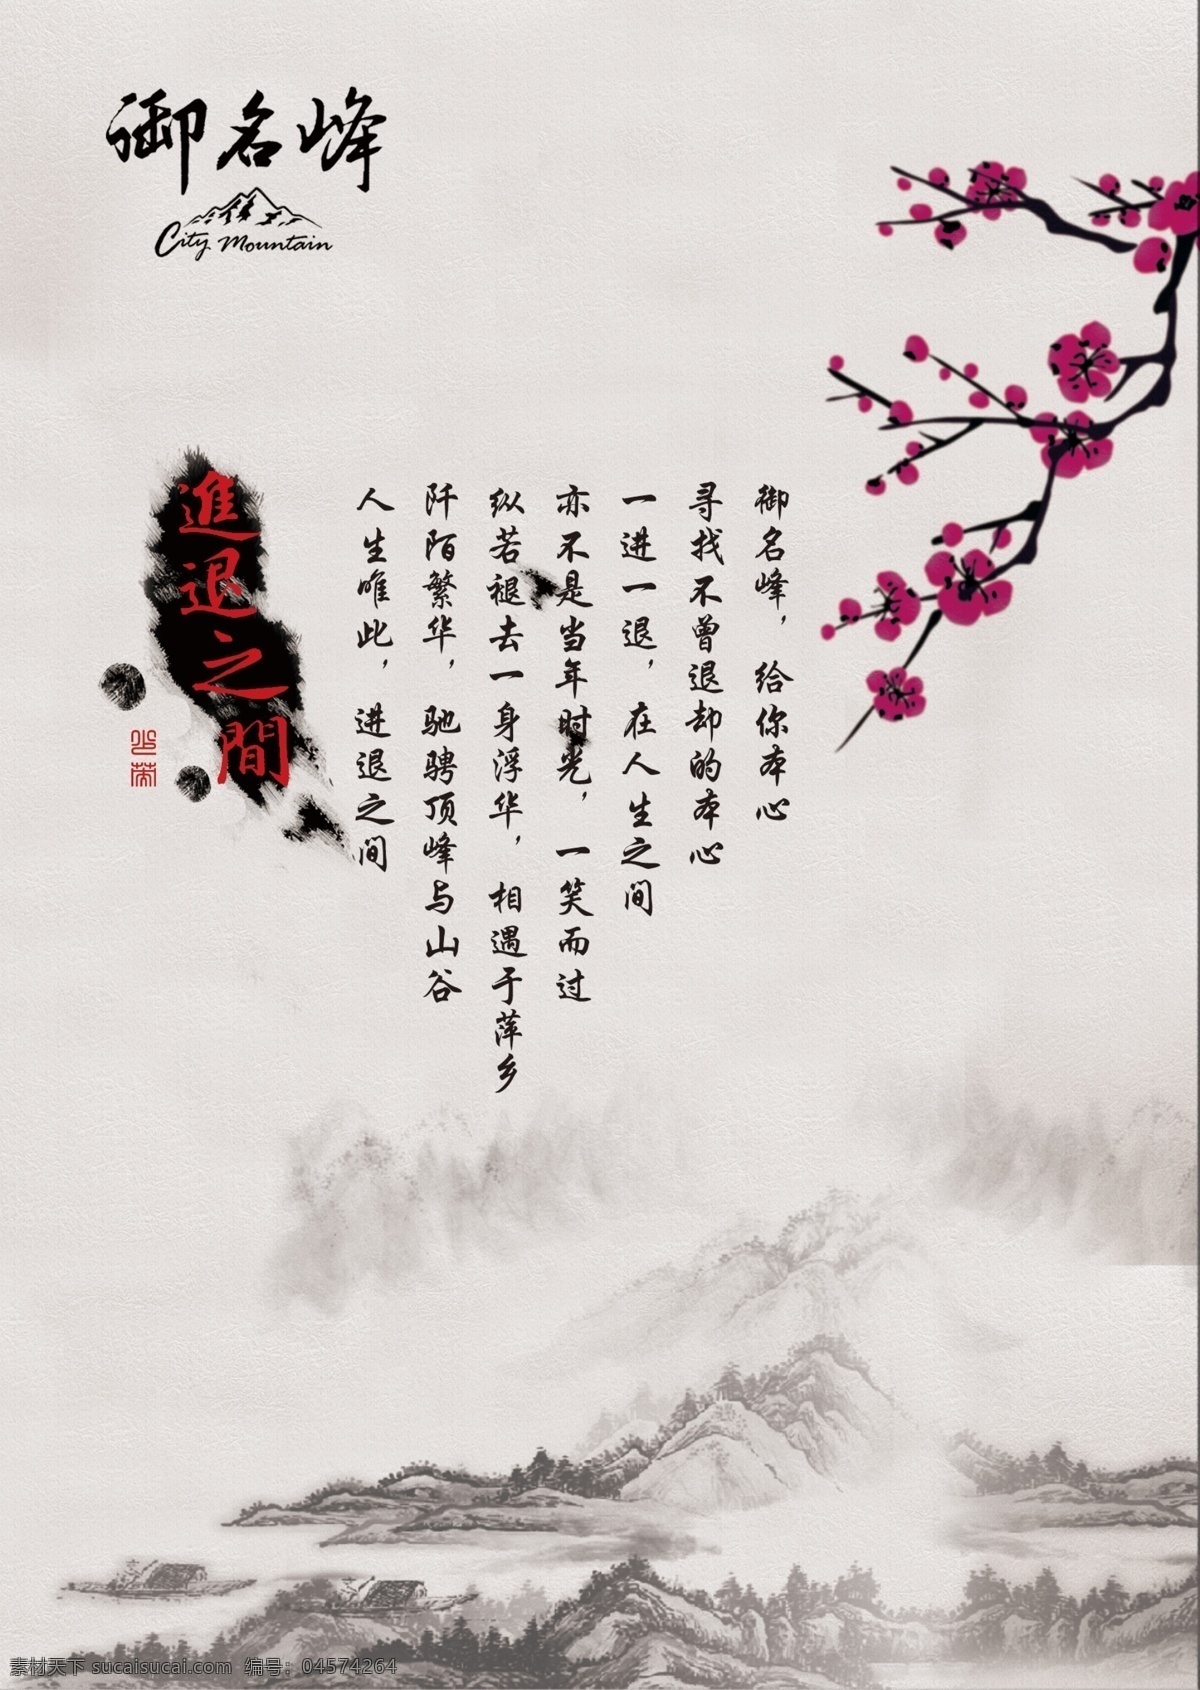 御名峰
City Mountain
御名峰，给你本心
寻找不曾退却的本心
一进一退，在人生之间
亦不是当年时光，一笑而过
纵若褪去一身浮华，相遇于萍乡
阡陌繁华，驰骋顶峰与山谷
人生唯此，进退之间
進退之間
素材天下 sucaisucai.com 编号：04574264